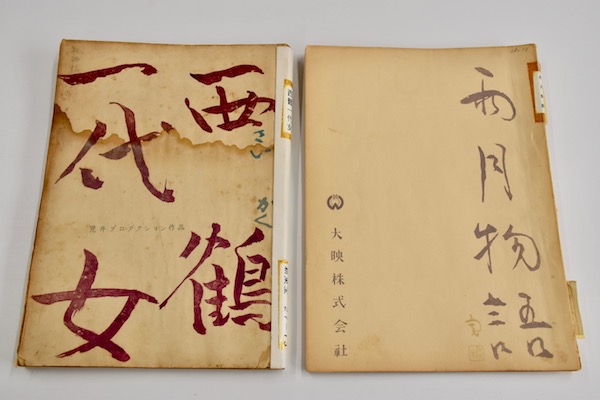 西鶴
さいかく
一代女
児井プロダクション作品
西鶴一代女
雨月物語
大映株式会社